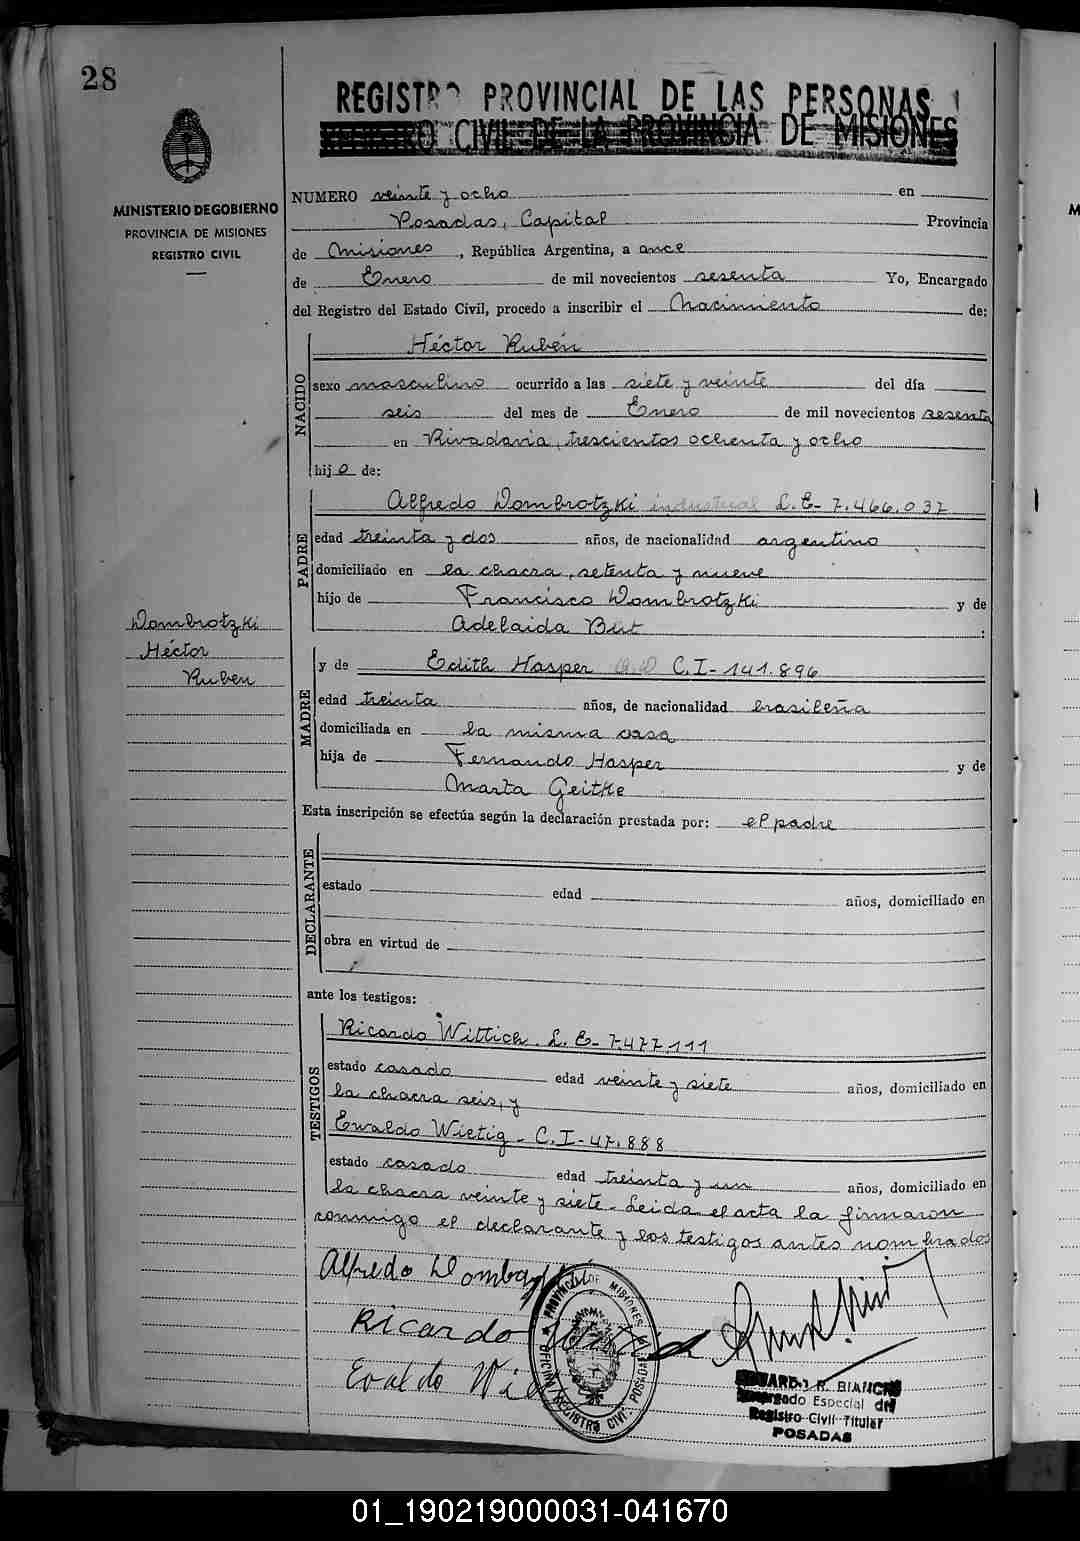 28
REGISTRO PROVINCIAL DE LAS PERSONAS
REGISTRO CIVIL DE LA PROVINCIA DE MISIONES
MINISTERIO DE GOBIERNO
PROVINCIA DE MISIONES
REGISTRO CIVIL
NUMERO veinte y ocho en
Posadas, Capital Provincia
de Misiones, República Argentina, a once
de Enero de mil novecientos sesenta Yo, Encargado
del Registro del Estado Civil, procedo a inscribir el Nacimiento de:
NACIDO
Héctor Rubén
sexo masculino ocurrido a las siete y veinte del día
seis del mes de Enero de mil novecientos sesenta
en Rivadavia, trescientos ochenta y ocho
hijo de:
PADRE
Alfredo Dombrotzki industrial L.E- 7.466.037
edad treinta y dos años, de nacionalidad argentino
domiciliado en la chacra, setenta y nueve
hijo de Francisco Dombrotzki y de
Adelaida But
Dombrotzki
Héctor
Ruben
MADRE
y de Edith Hasper C.I-141.896
edad treinta años, de nacionalidad brasileña
domiciliada en la misma casa
hija de Fernando Hasper y de
Marta Geitke
Esta inscripción se efectúa según la declaración prestada por: el padre
DECLARANTE
estado edad años, domiciliado en
obra en virtud de
ante los testigos:
TESTIGOS
Ricardo Wittich. L.E- 7.477.111
estado casado edad veinte y siete años, domiciliado en
la chacra seis, y
Ewaldo Wietig- C.I-47.888
estado casado edad treinta y un años, domiciliado en
la chacra veinte y siete. Leida el acta la firmaron
conmigo el declarante y los testigos antes nombrados
Alfredo Dombrotzki
Ricardo
Evaldo
PROVINCIA DE MISIONES
OFICINA REGISTRO CIVIL POSADAS
EDUARDO R. BIANCHI
Encargado Especial del
Registro Civil Titular
POSADAS
M
01_190219000031-041670